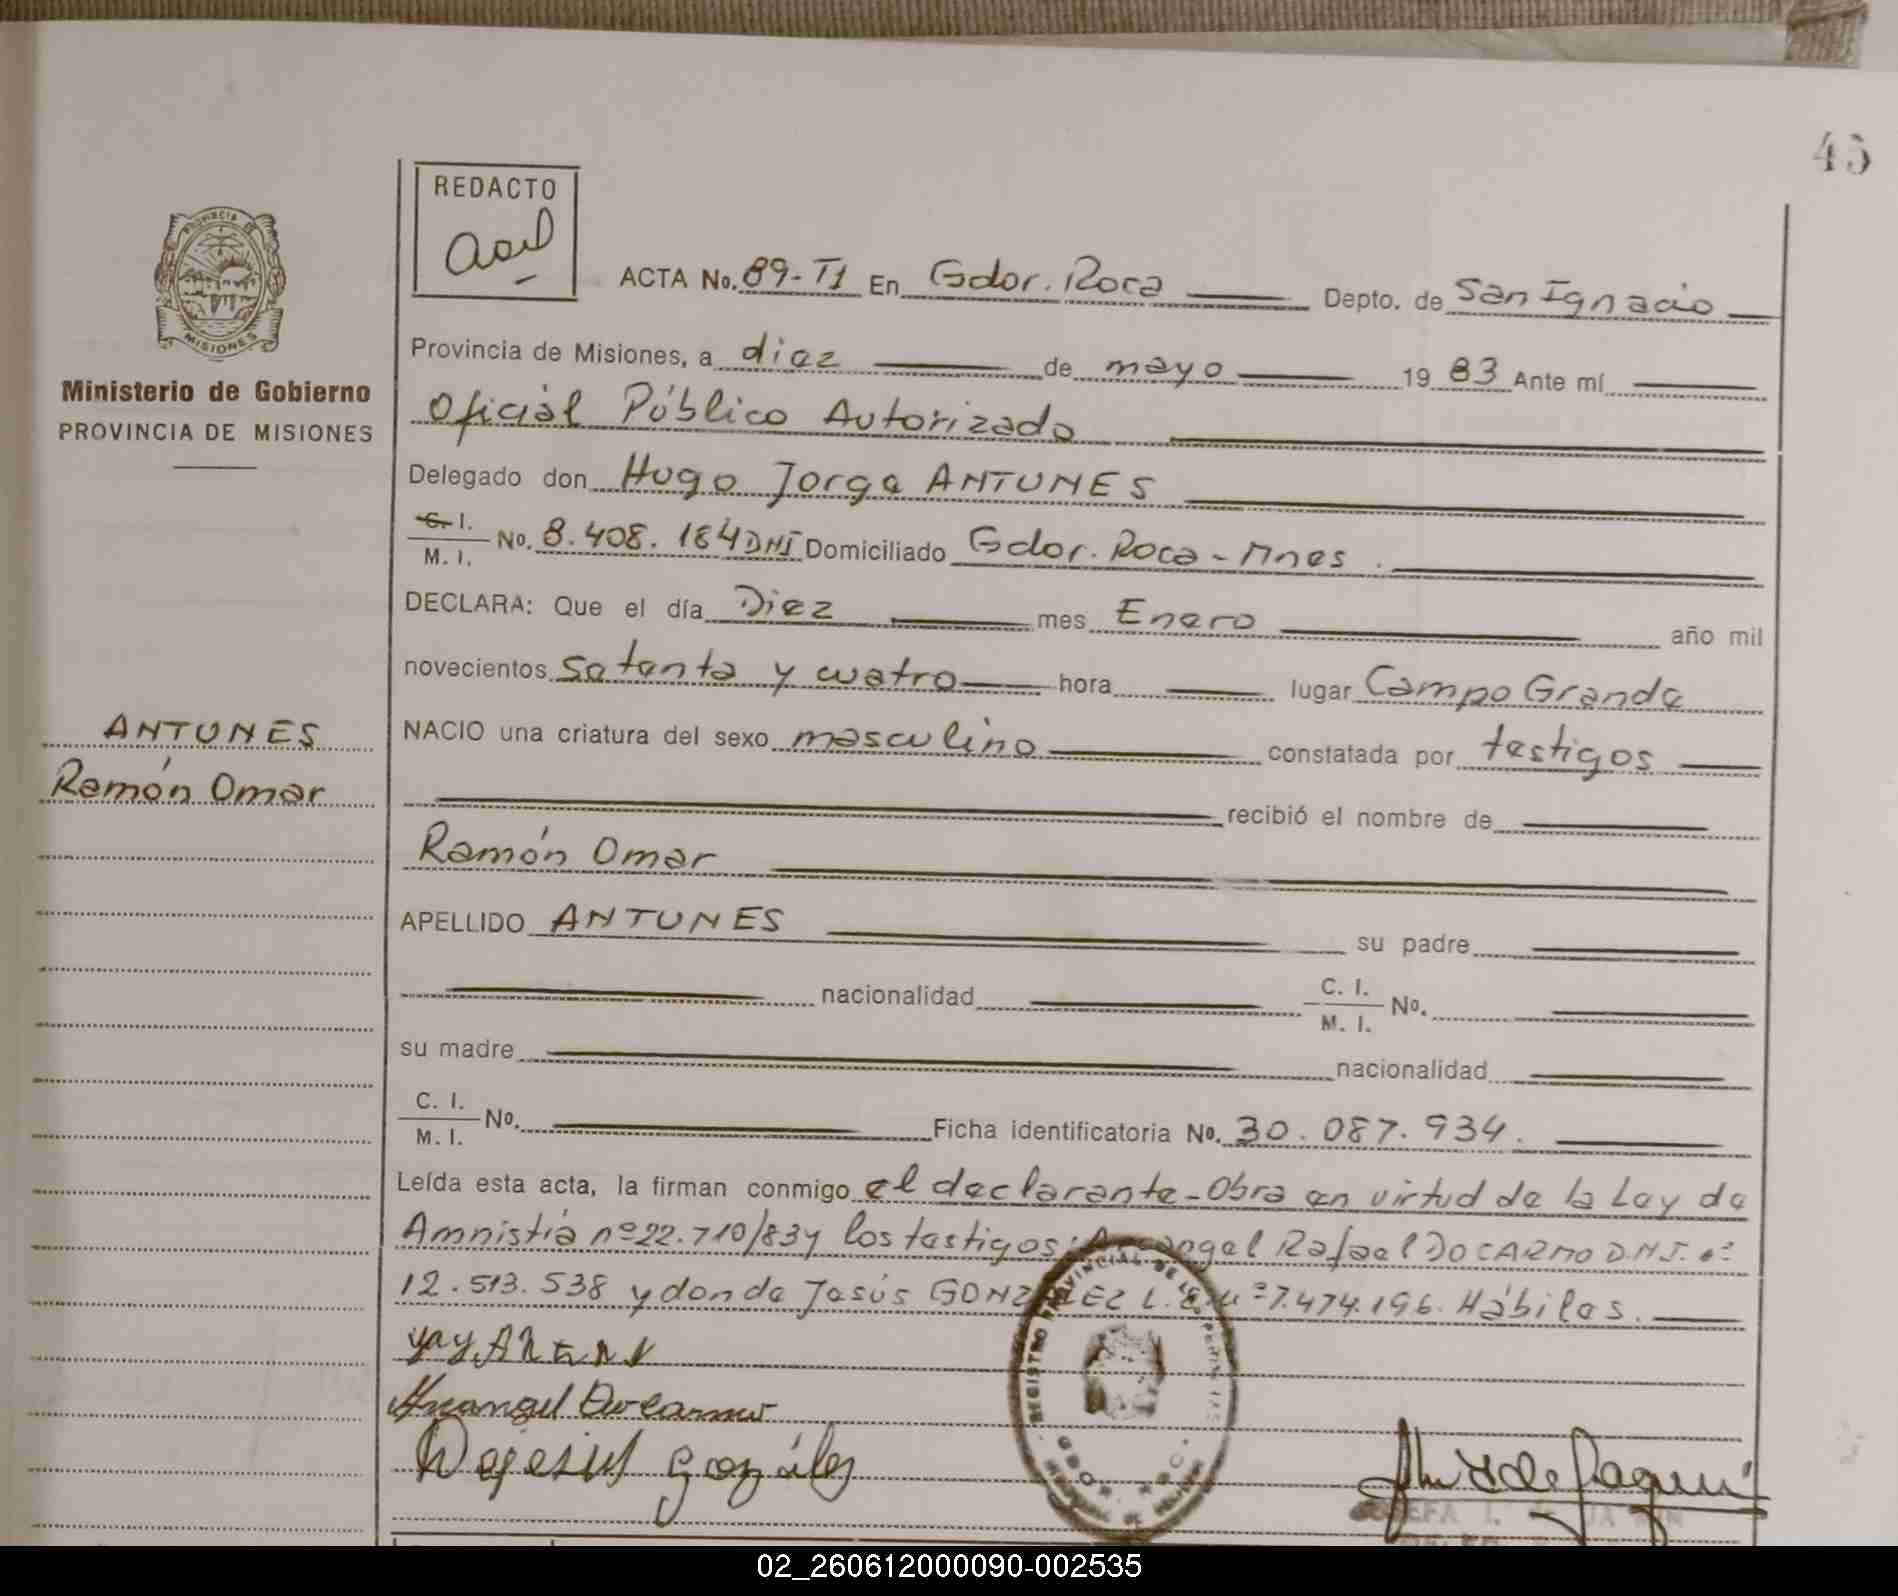 45
REDACTO
PROVINCIA DE
MISIONES
Ministerio de Gobierno
PROVINCIA DE MISIONES
ACTA No. 89-T1 En Gdor. Roca Depto. de San Ignacio
Provincia de Misiones, a diez de mayo 19 83 Ante mí
Oficial Público Autorizado
Delegado don Hugo Jorge ANTUNES
C. I.
M. I.
No. 8.408.184 DNI Domiciliado Gdor. Roca - Mnes.
DECLARA: Que el día Diez mes Enero año mil
novecientos setenta y cuatro hora lugar Campo Grande
ANTUNES
Ramón Omar
NACIO una criatura del sexo masculino constatada por testigos
recibió el nombre de
Ramón Omar
APELLIDO ANTUNES su padre
nacionalidad C. I.
M. I. No.
su madre nacionalidad
C. I.
M. I. No. Ficha identificatoria No. 30.087.934.
Leída esta acta, la firman conmigo el declarante - Obra en virtud de la Ley de
Amnistía nº 22.710/83 y los testigos: Arcangel Rafael DO CARMO D.N.I. nº
12.513.538 y don de Jesús GONZALEZ L.E. nº 7.474.196. Hábiles.
Arcangel Do carmo
Dejesus González
REGISTRO PROVINCIAL DE LAS PERSONAS
GDOR. ROCA
02_260612000090-002535